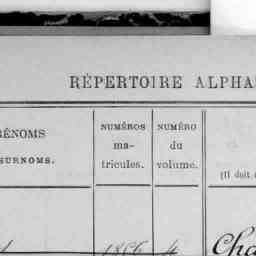 RÉPERTOIRE ALPHA
RÉNOMS
SURNOMS.
NUMÉROS
ma-
tricules.
NUMÉRO
du
volume.
(Il doit
1866 4 Cha